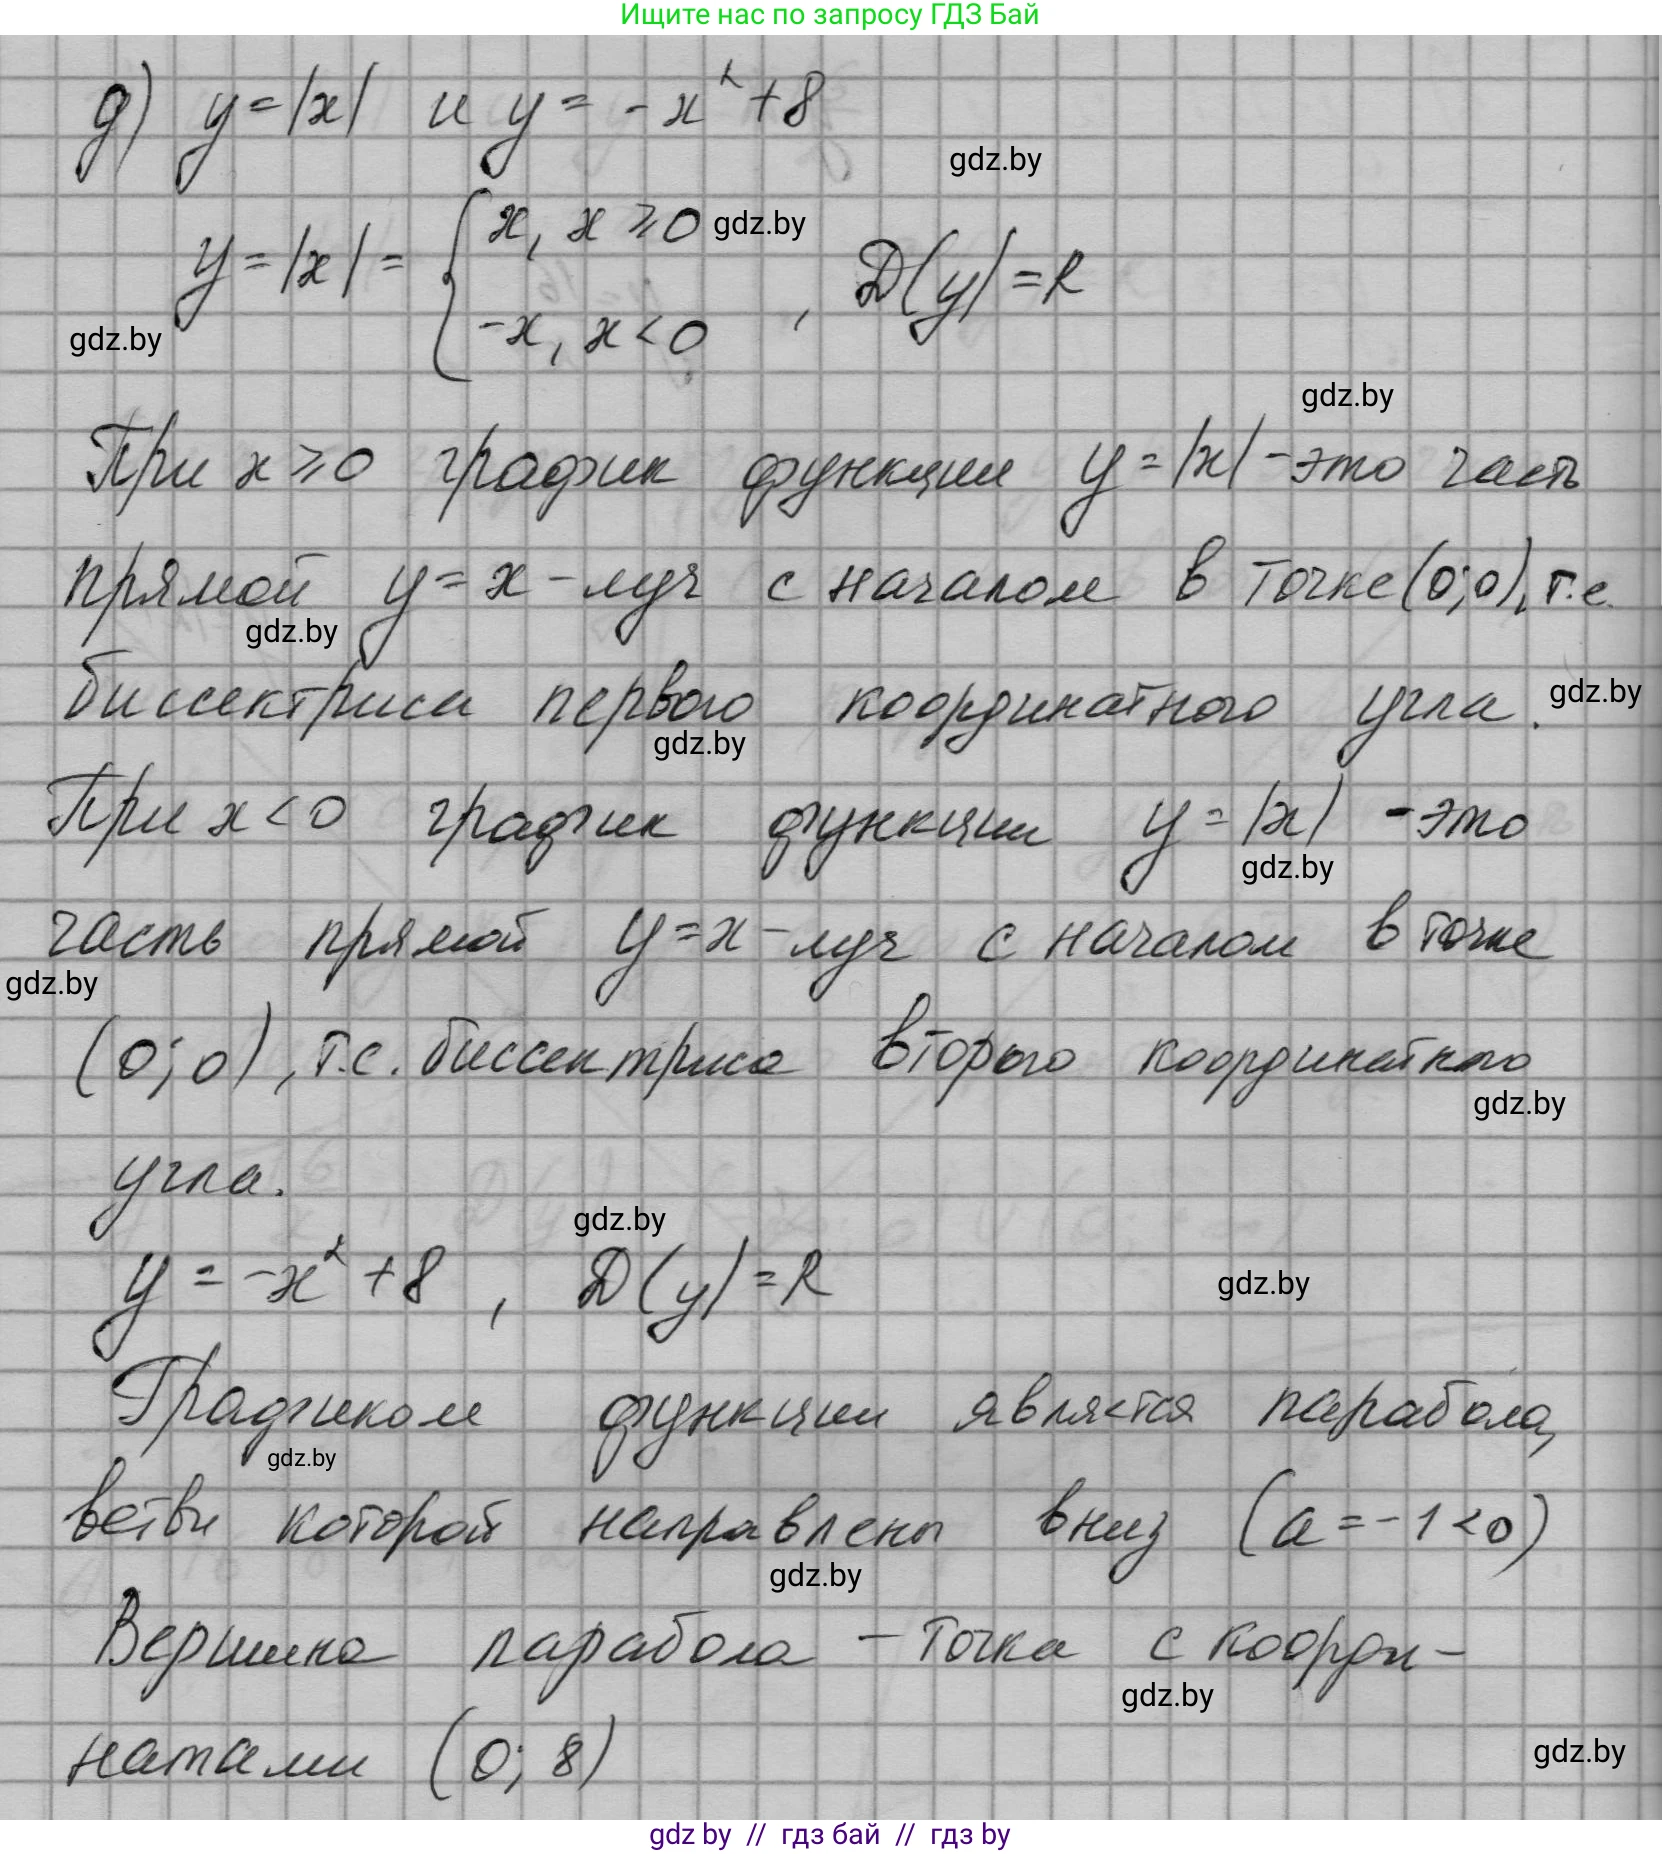 Ищите нас по запросу ГДЗ Бай
д) y=|x| и y = -x² +8
gdz.by
y=|x| = { x, x ⩾0 gdz.by
-x, x<0 , D(y)=R
gdz.by
gdz.by
При x⩾0 график функции y=|x| -это часть
прямой y=x -луч с началом в точке (0;0), т.е.
gdz.by
биссектриса первого координатного угла.
gdz.by
gdz.by
При x<0 график функции y=|x| -это
gdz.by
часть прямой y=x -луч с началом в точке
gdz.by
(0;0), т.е. биссектриса второго координатного
gdz.by
угла.
gdz.by
y = -x² +8 , D(y)=R
gdz.by
Графиком функции является парабола,
gdz.by
ветви которой направлены вниз (a = -1 <0)
gdz.by
Вершина парабола - точка с коорди-
gdz.by
натами (0; 8)
gdz.by
gdz by // гдз бай // гдз by